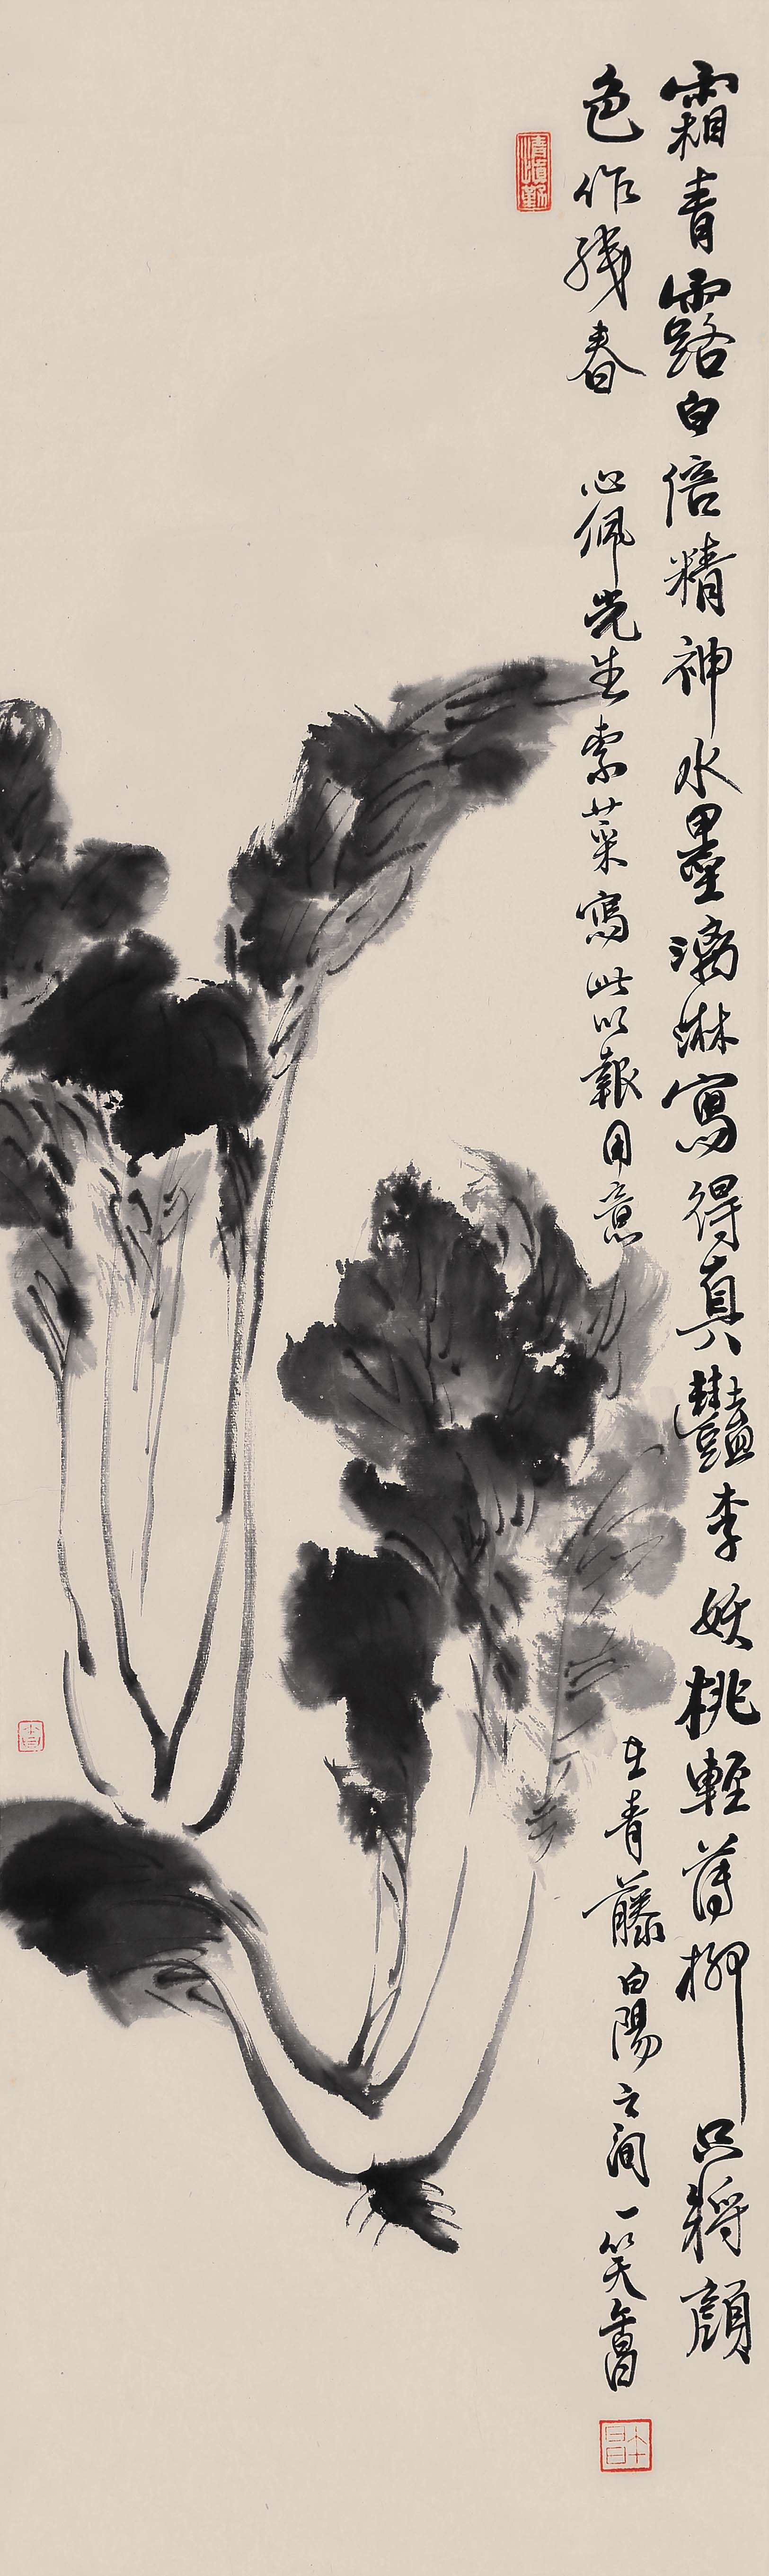 霜青露白倍精神水墨漓淋寫得真豔李妖桃輕薄柳只將顏
色作殘春 心佩先生索菜寫此以報用意
在青藤白陽之間一笑